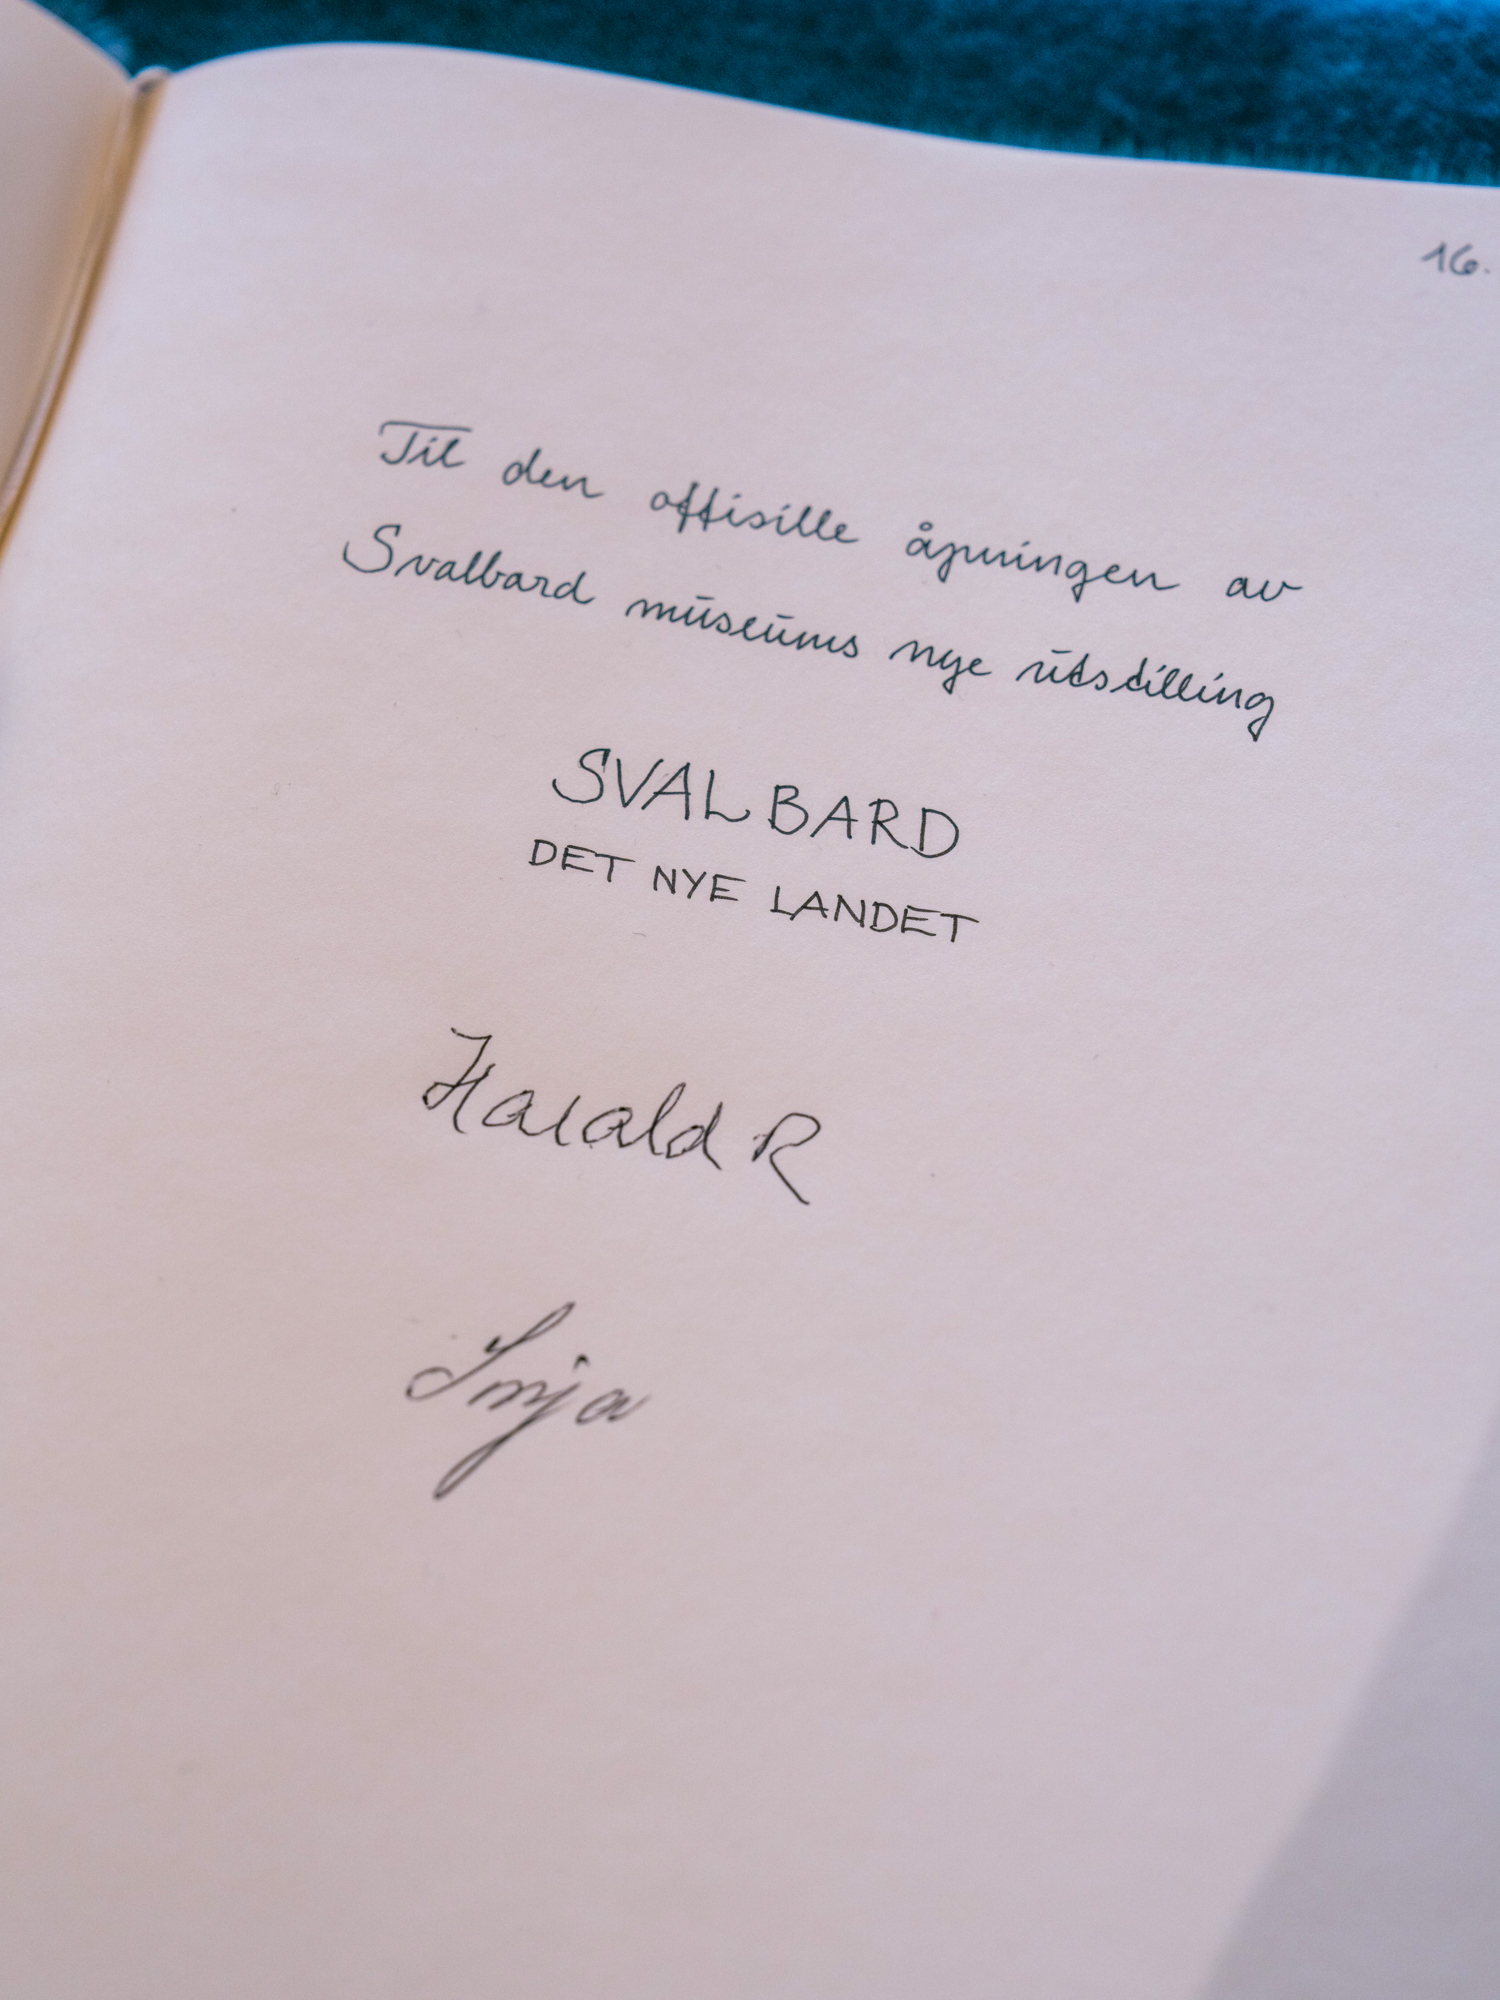 16.
Til den offisille åpningen av
Svalbard museums nye utstilling
SVALBARD
DET NYE LANDET
Harald R
Sonja